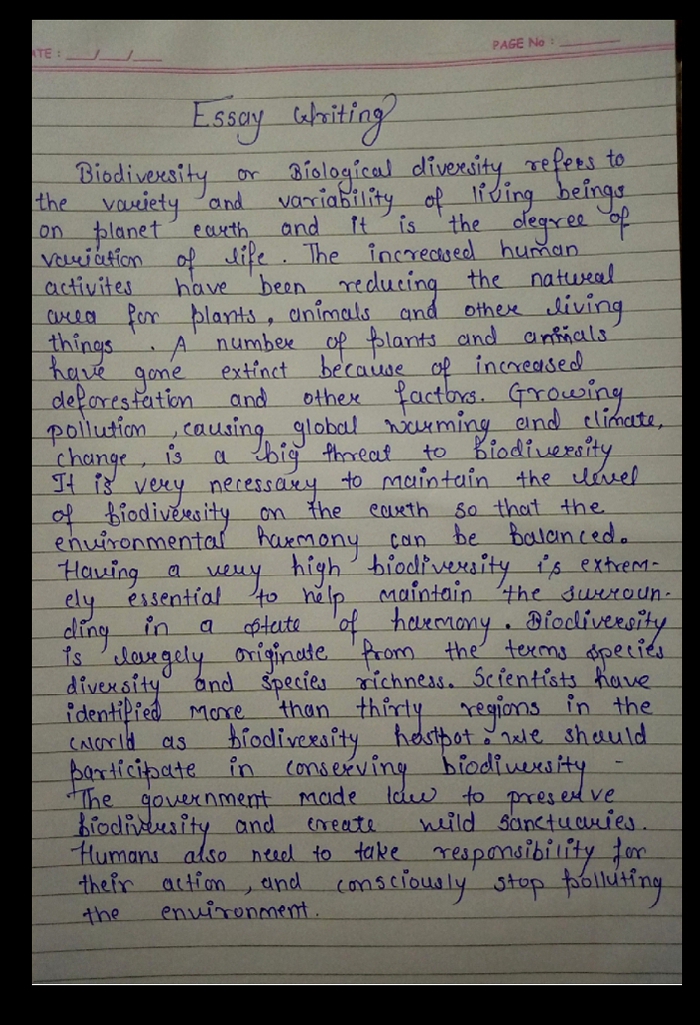 ATE : __/__/__
PAGE No : ______
Essay Writing
Biodiversity or Biological diversity refers to
the variety and variability of living beings
on planet earth and it is the degree of
variation of life. The increased human
activites have been reducing the natural
area for plants, animals and other living
things . A number of plants and animals
have gone extinct because of increased
deforestation and other factors. Growing
pollution , causing global warming and climate,
change, is a big threat to biodiversity
It is very necessary to maintain the level
of biodiversity on the earth so that the
environmental harmony can be balanced.
Having a very high biodiversity is extrem-
ely essential to help maintain the surroun-
ding in a state of harmony. Biodiversity
is largely originate from the terms species
diversity and species richness. Scientists have
identified more than thirty regions in the
world as biodiversity hostpot. We should
participate in conserving biodiversity -
The government made law to preserve
biodiversity and create wild sanctuaries.
Humans also need to take responsibility for
their action , and consciously stop polluting
the environment.